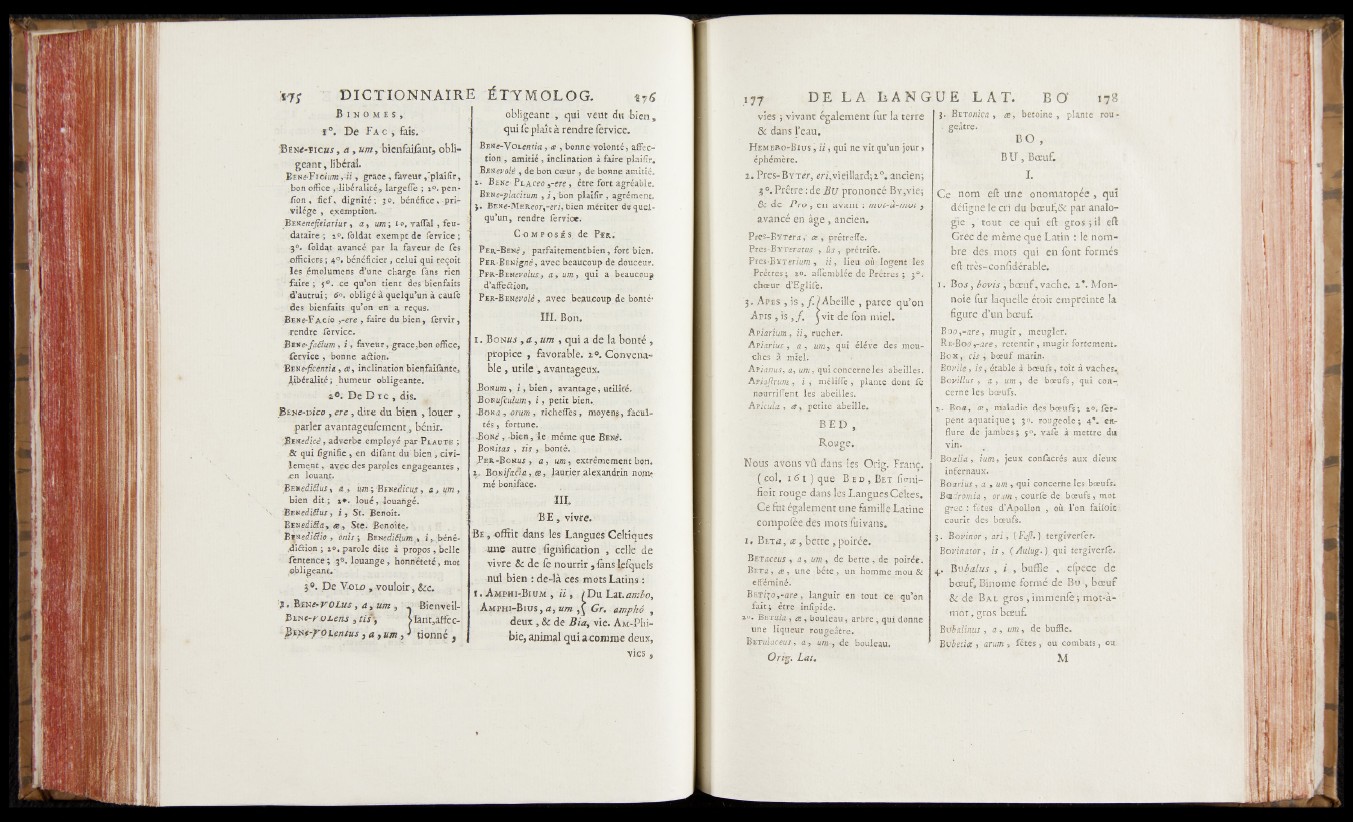 175 DICTIONNAIRE ÉTYMOLOG. 176
BINOMES,
1°. De FAC, fais.
BENe-FICus, a, um, bienfaiſant, obli-
geant, libéral.
BENe-FICium, ii, grace, faveur, plaiſir,
bon office, libéralité, largeſſe ; 2°. pen-
ſion, fief, dignité ; 3°. bénéfice, pri-
vilége, exemption.
BENeneficiarius, a, um; 1°. vaſſal, feu-
dataire ; 2°. ſoldat exempt de ſervice ;
3°. ſoldat avancé par la faveur de ſes
officiers ; 4°. bénéficier, celui qui reçoit
les émolumens d'une charge ſans rien
faire ; 5°. ce qu'on tient des bienfaits
d'autrui ; 6°. obligé à quelqu'un à cauſe
des bienfaits qu'on en a reçus.
BENe-FAcio,-ere, faire du bien, ſervir,
rendre ſervice.
BENe-factum, i, faveur, grace, bon office,
ſervice, bonne action.
BENe-ficentia, æ, inclination bienfaiſante,
libéralité ; humeur obligeante.
2°. De DIC, dis.
BENe-DICO, ere, dire du bien, louer,
parler avantageuſement, bénir.
BENedicè, adverbe employé par PLAUTE :
& qui ſignifie, en diſant du bien, civi-
lement, avec des paroles engageantes,
en louant.
BENedictus, a, um; BENedicus, a, um,
bien dit ; 2°. loué, louangé.
BENedictus, i, St. Benoît.
BENedicta, æ, Ste. Benoite.
BENedictio, onis ; BENedictum, i, béné-
diction ; 2°. parole dite à propos, belle
ſentence ; 3°. louange, honnêteté, mot
obligeant.
3°. De VOLO, vouloir, &c.
1. BENe-VOLus, a, um, Bienveil-
BENe-VOLens, tis, lant, affec-
BENe-VOLentus, a, um, tionné,
obligeant, qui veut du bien,
qui ſe plaît à rendre ſervice.
BENe-VOLentia, æ, bonne volonté, affec-
tion, amitié, inclination à faire plaiſir.
BENevolè, de bon cœur, de bonne amitié.
2. BENe-PLACeo,-ere, être fort agréable.
BENe-placitum, i, bon plaiſir, agrément.
3. BENe-MEREor,-eri, bien mériter de quel-
qu'un, rendre ſervice.
COMPOSÉS de PER.
PER-BENè, parfaitement bien, fort bien.
PER-BENignè, avec beaucoup de douceur.
PER-BENevolus, a, um, qui a beaucoup
d'affection.
PER-BENevolè, avec beaucoup de bonté.
III. Bon.
1. BONus, a, um, qui a de la bonté,
propice, favorable. 2°. Convena-
ble, utile, avantageux.
BONum, i, bien, avantage, utilité.
BONuſculum, i, petit bien.
BONa, orum, richeſſes, moyens, facul-
tés, fortune.
BONè, bien, le même que BENè.
BONitas, tis, bonté.
PER-BONus, a, um, extrêmement bon.
2. BONifacia, æ, laurier alexandrin nom-
mé boniface.
III.
BE, vivre.
BE, offrit dans les Langues Celtiques
une autre ſignification, celle de
vivre & de ſe nourrir, ſans leſquels
nul bien : de-là ces mots Latins :
1. AMPHI-BIUM, ii, Du Lat. ambo,
AMPHI-BIUS, a, um, Gr. amphó,
deux, & de Bia, vie. AM-Phi-
bie, animal qui a comme deux,
vies,
177 DE LA LANGUE LAT. BO 178
vies ; vivant également ſur la terre
& dans l'eau.
HEMERO-BIus, ii, qui ne vit qu'un jour,
éphémère.
2. PRES-BYTER, eri, vieillard; 2°. ancien;
3°. Prêtre : de BU prononcé BY, vie;
& de Pro, en avant : mot-à-mot,
avancé en âge, ancien.
PRES-BYTera, æ, prêtreſſe.
PRES-BYTeratus, ûs, prétriſe.
PRES-BYTerium, ii, lieu où logent les
Prêtres ; 2°. aſſemblée de Prêtres ; 3°.
chœur d'Egliſe.
3. APES, is, f. Abeille, parce qu'on
APIS, is, f. vit de ſon miel.
APiarium, ii, rucher.
APiarius, a, um, qui élève des mou-
ches à miel.
APianus, a, um, qui concerne les abeilles.
APiaſtrum, i, méliſſe, plante dont ſe
nourriſſent les abeilles.
APicula, æ, petite abeille.
BED,
Rouge.
Nous avons vû dans les Orig. Franç.
(col. 161) que BED, BET ſigni-
fioit rouge dans les Langues Celtes.
Ce fut également une famille Latine
compoſée des mots ſuivans.
1. BETA, æ, bette, poirée.
BETaceus, a, um, de bette, de poirée.
BETA, æ, une bête, un homme mou &
efféminé.
BETizo,-are, languir en tout ce qu'on
fait ; être inſipide.
2°. BETula, æ, bouleau, arbre, qui donne
une liqueur rougeâtre.
BETulaceus, a, um, de bouleau.
Orig. Lat.
3. BETonica, æ, betoine, plante rou-
geâtre.
BO,
BU, Bœuf.
I.
Ce nom eſt une onomatopée, qui
déſigne le cri du bœuf, & par analo-
gie, tout ce qui eſt gros ; il eſt
Grec de même que Latin : le nom-
bre des mots qui en ſont formés
eſt très-conſidérable.
1. BOS, bovis, bœuf, vache. 2°. Mon-
noie ſur laquelle étoit empreinte la
figure d'un bœuf.
BOO,-are, mugir, meugler.
RE-BOO,-are, retentir, mugir fortement.
BOX, cis, bœuf marin.
BOvile, is, étable à bœufs, toit à vaches.
BOvillus, a, um, de bœufs, qui con-
cerne les bœufs.
2. BOA, æ, maladie des bœufs; 2°. ſer-
pent aquatique ; 3°. rougeole ; 4°. en-
flure de jambes ; 5°. vaſe à mettre du
vin.
BOalia, ium, jeux conſacrés aux dieux
infernaux.
BOarius, a, um, qui concerne les bœufs.
BOEdromia, orum, courſe de bœufs, mot
grec : fêtes d'Apollon, où l'on faiſoit
courir des bœufs.
3. BOvinor, ari, (Feſt.) tergiverſer.
BOvinator, is, (Aulug.) qui tergiverſe.
4. BUbalus, i, buffle, eſpece de
bœuf, Binome formé de BU, bœuf
& de BAL gros, immenſe ; mot-à-
mot, gros bœuf.
BUbalinus, a, um, de buffle.
BUbetiæ, arum, fêtes, ou combats, ou
M